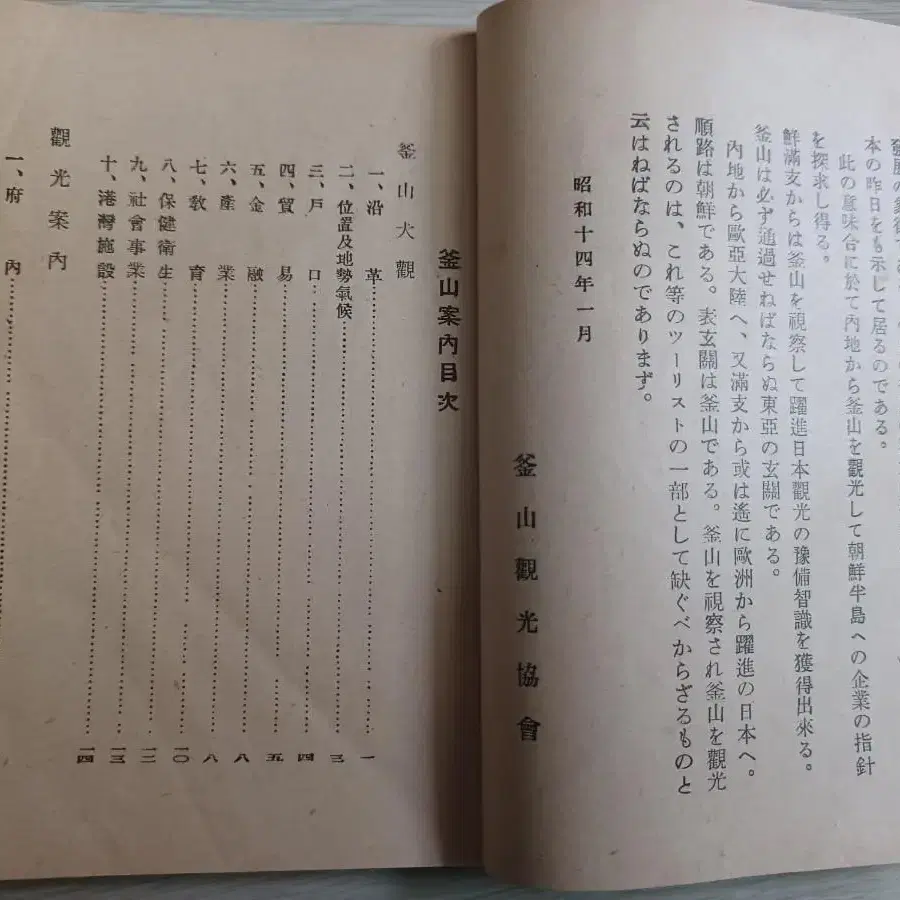 本の昨日をも示して居るのである。
此の意味合に於て內地から釜山を觀光して朝鮮半島への企業の指針
を探求し得る。
鮮滿支からは釜山を視察して躍進日本觀光の豫備智識を獲得出來る。
釜山は必ず通過せねばならぬ東亞の玄關である。
內地から歐亞大陸へ、又滿支から或は遙に歐洲から躍進の日本へ。
順路は朝鮮である。表玄關は釜山である。釜山を視察され釜山を觀光
されるのは、これ等のツーリストの一部として缺ぐべからざるものと
云はねばならぬのであります。
昭和十四年一月
釜山觀光協會
釜山案內目次
釜山大觀
一、沿革……一
二、位置及地勢氣候……三
三、戶口……四
四、貿易……五
五、金融……八
六、產業……八
七、敎育……一〇
八、保健衞生……一一
九、社會事業……一三
十、港灣施設……一四
觀光案內
一、府內……